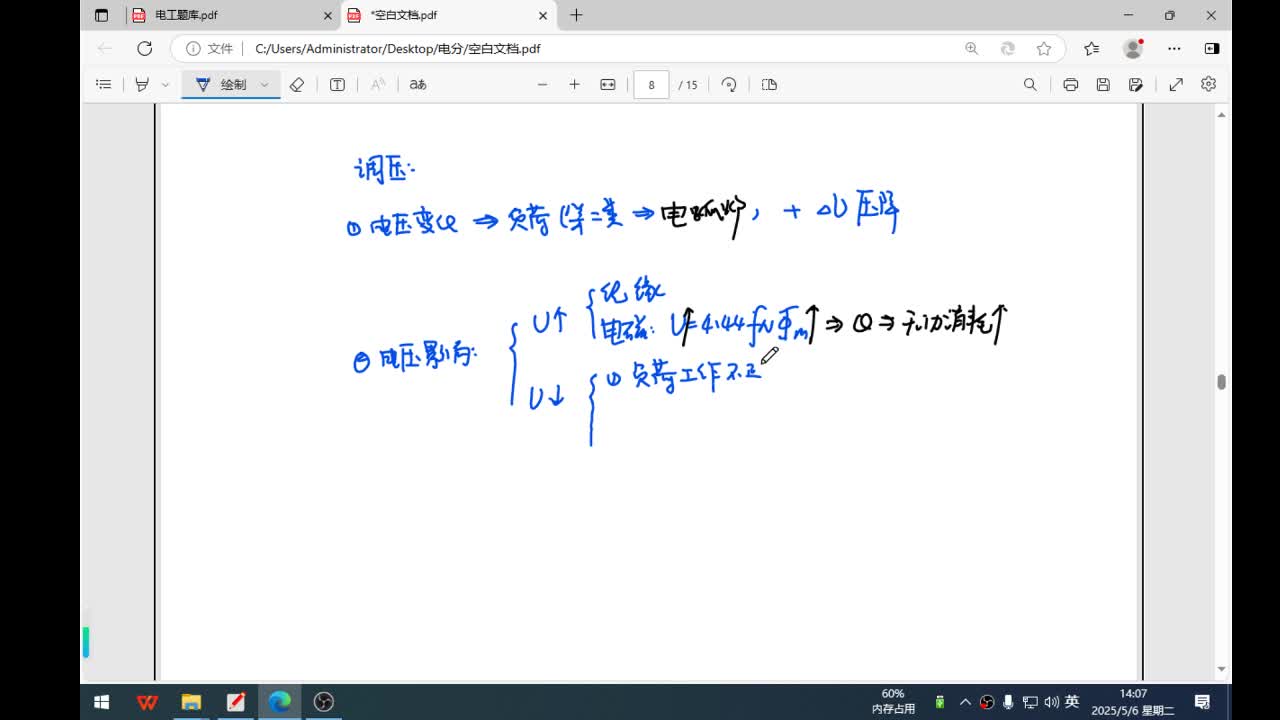 电工题库.pdf
*空白文档.pdf
文件 C:/Users/Administrator/Desktop/电分/空白文档.pdf
绘制 aあ 8 / 15
调压:
① 电压变化 ⇒ 负荷 第二类 ⇒ 电 , + ΔU 压降
U↑ 绝缘
电磁: U↑=4.44fNΦm↑ ⇒ Q ⇒ 无功消耗↑
② 电压影响:
U↓ ① 负荷工作不正
60%
内存占用
英
14:07
2025/5/6 星期二